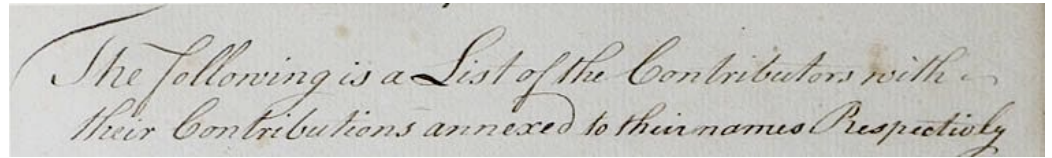 The following is a List of the Contributors with
their Contributions annexed to their names Respectivly